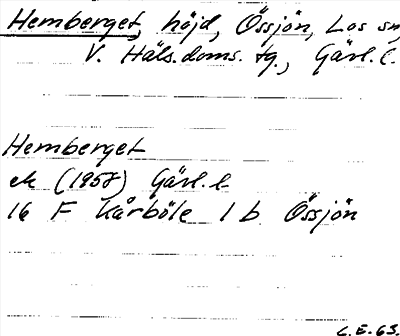 Hemberget, höjd, Össjön, Los sn,
V. Häls. doms. tg., Gävl. l.
Hemberget
ek (1958) Gävl. l.
16 F Kårböle 1 b Össjön
C.E. 63.